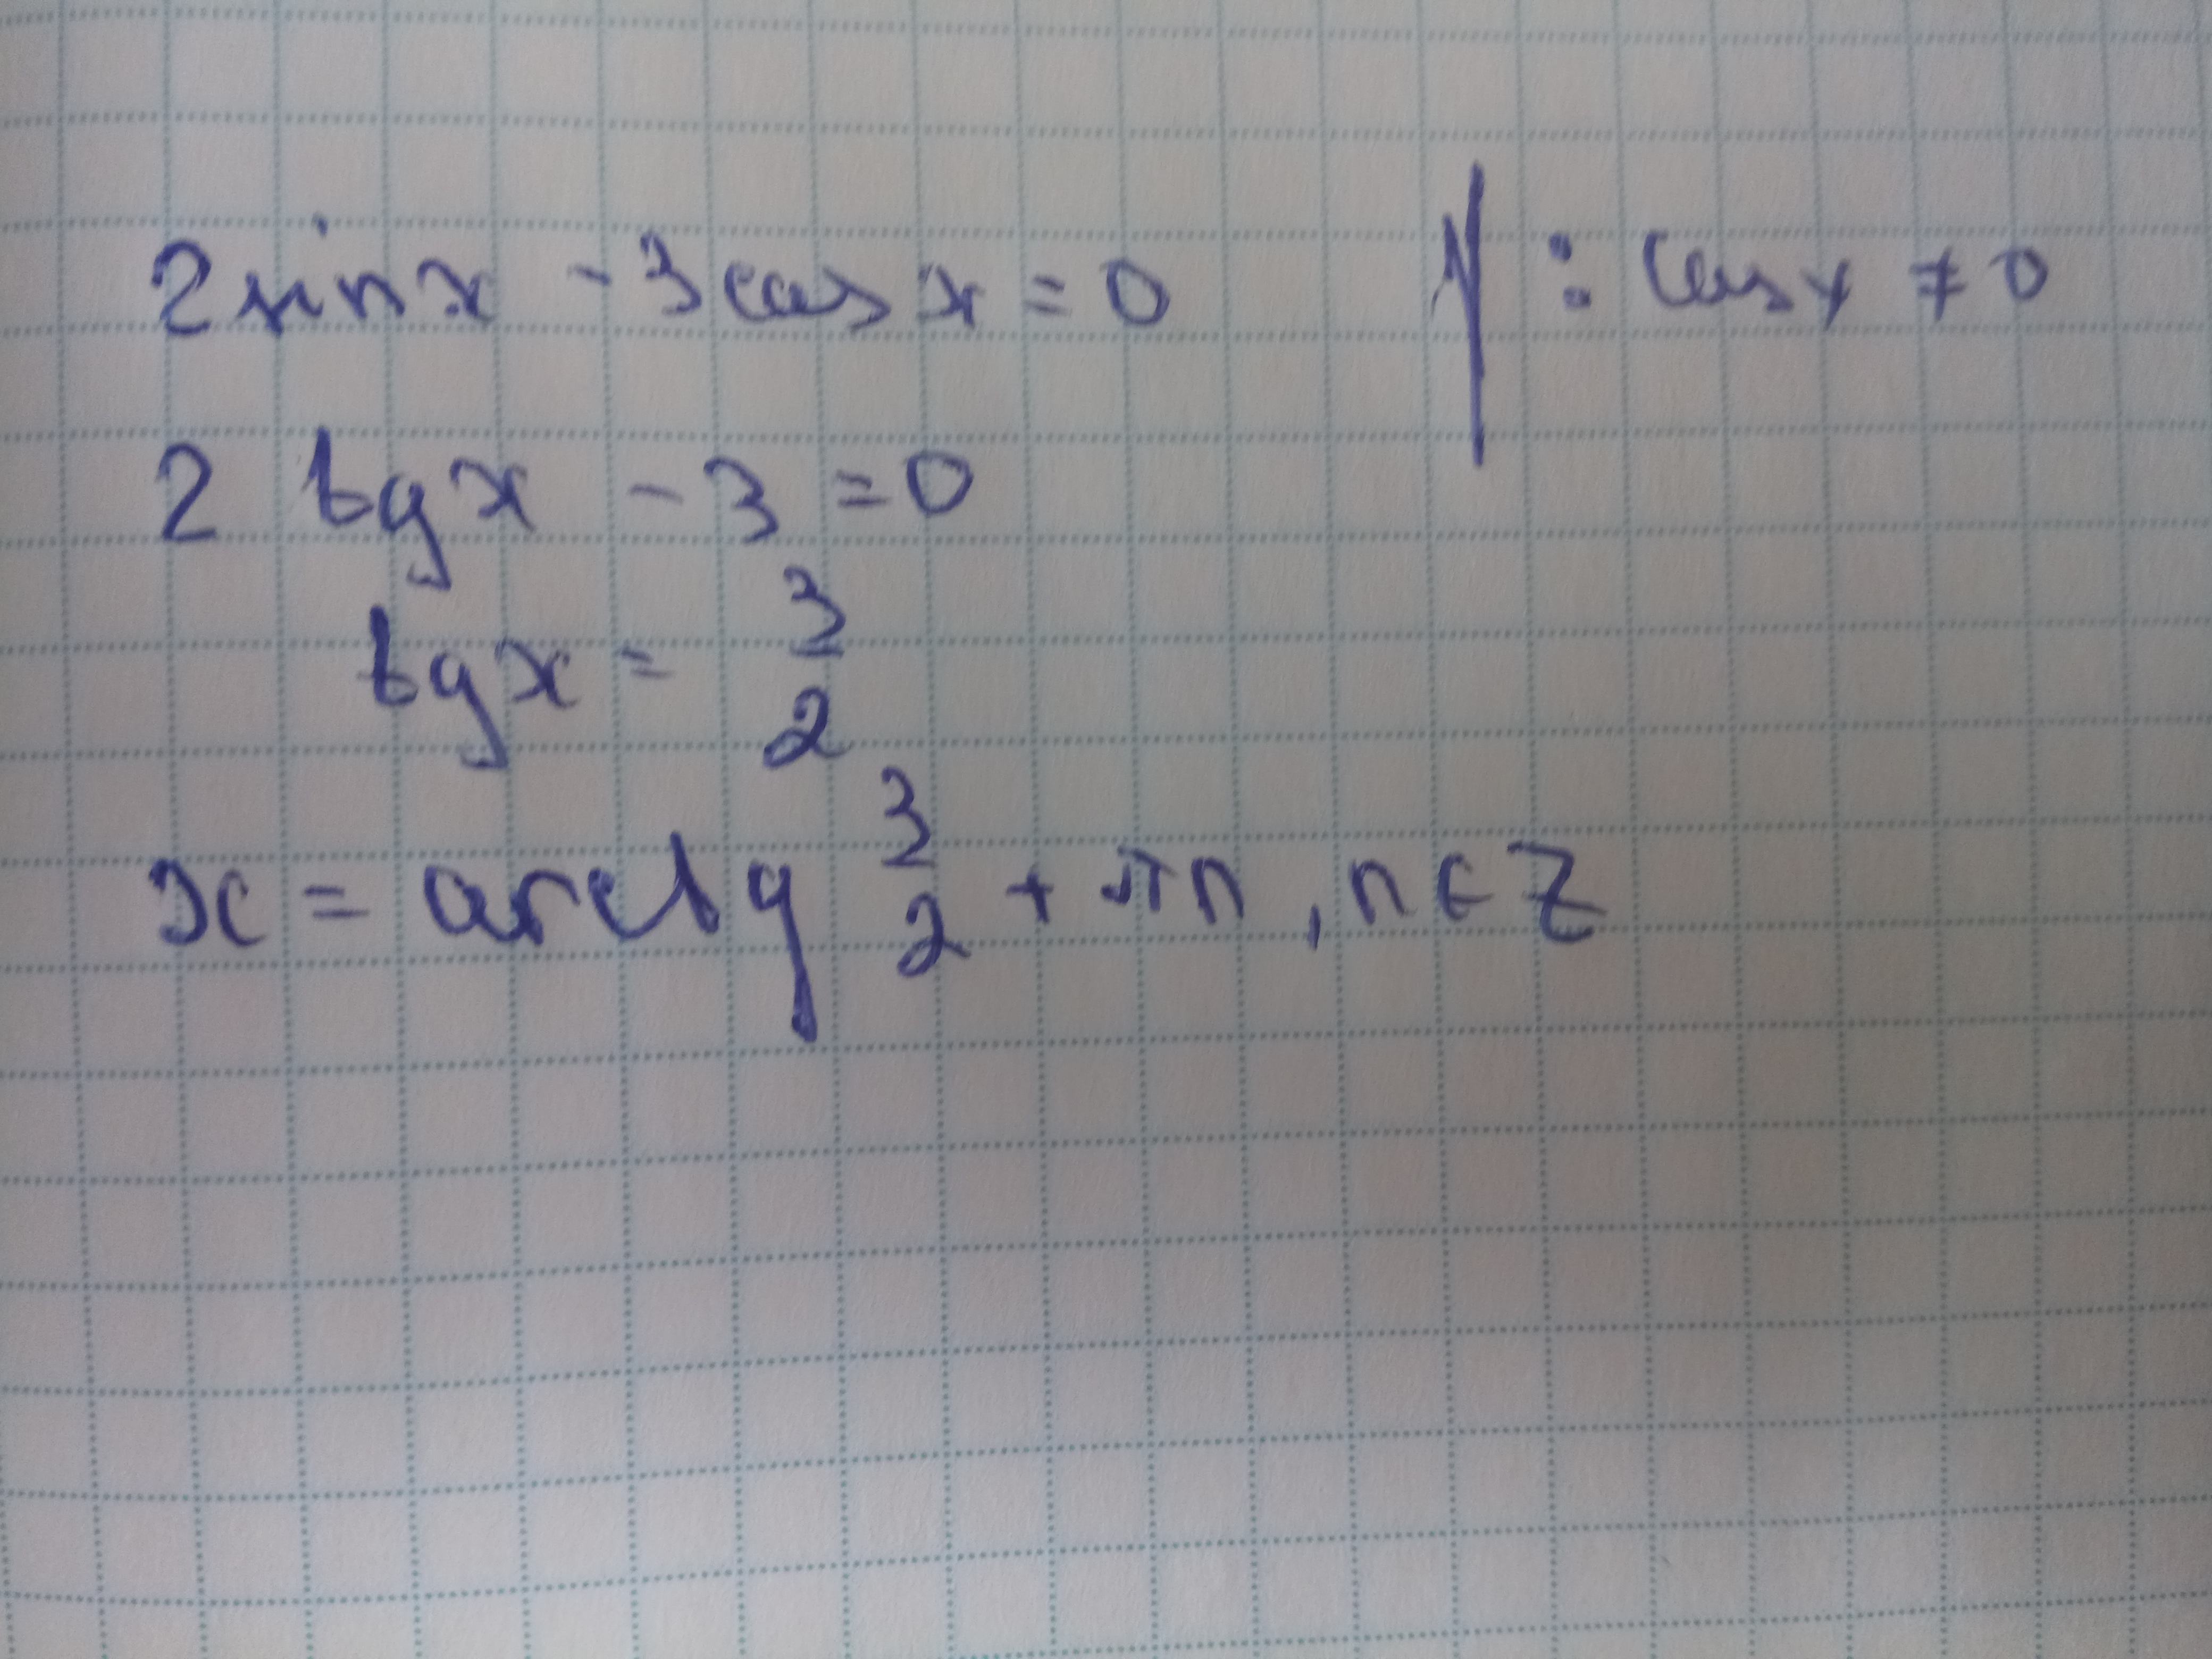 2 sin x - 3 cos x = 0 | : cos x ≠ 0
2 tg x - 3 = 0
tg x = 3/2
x = arctg 3/2 + πn, n ∈ Z